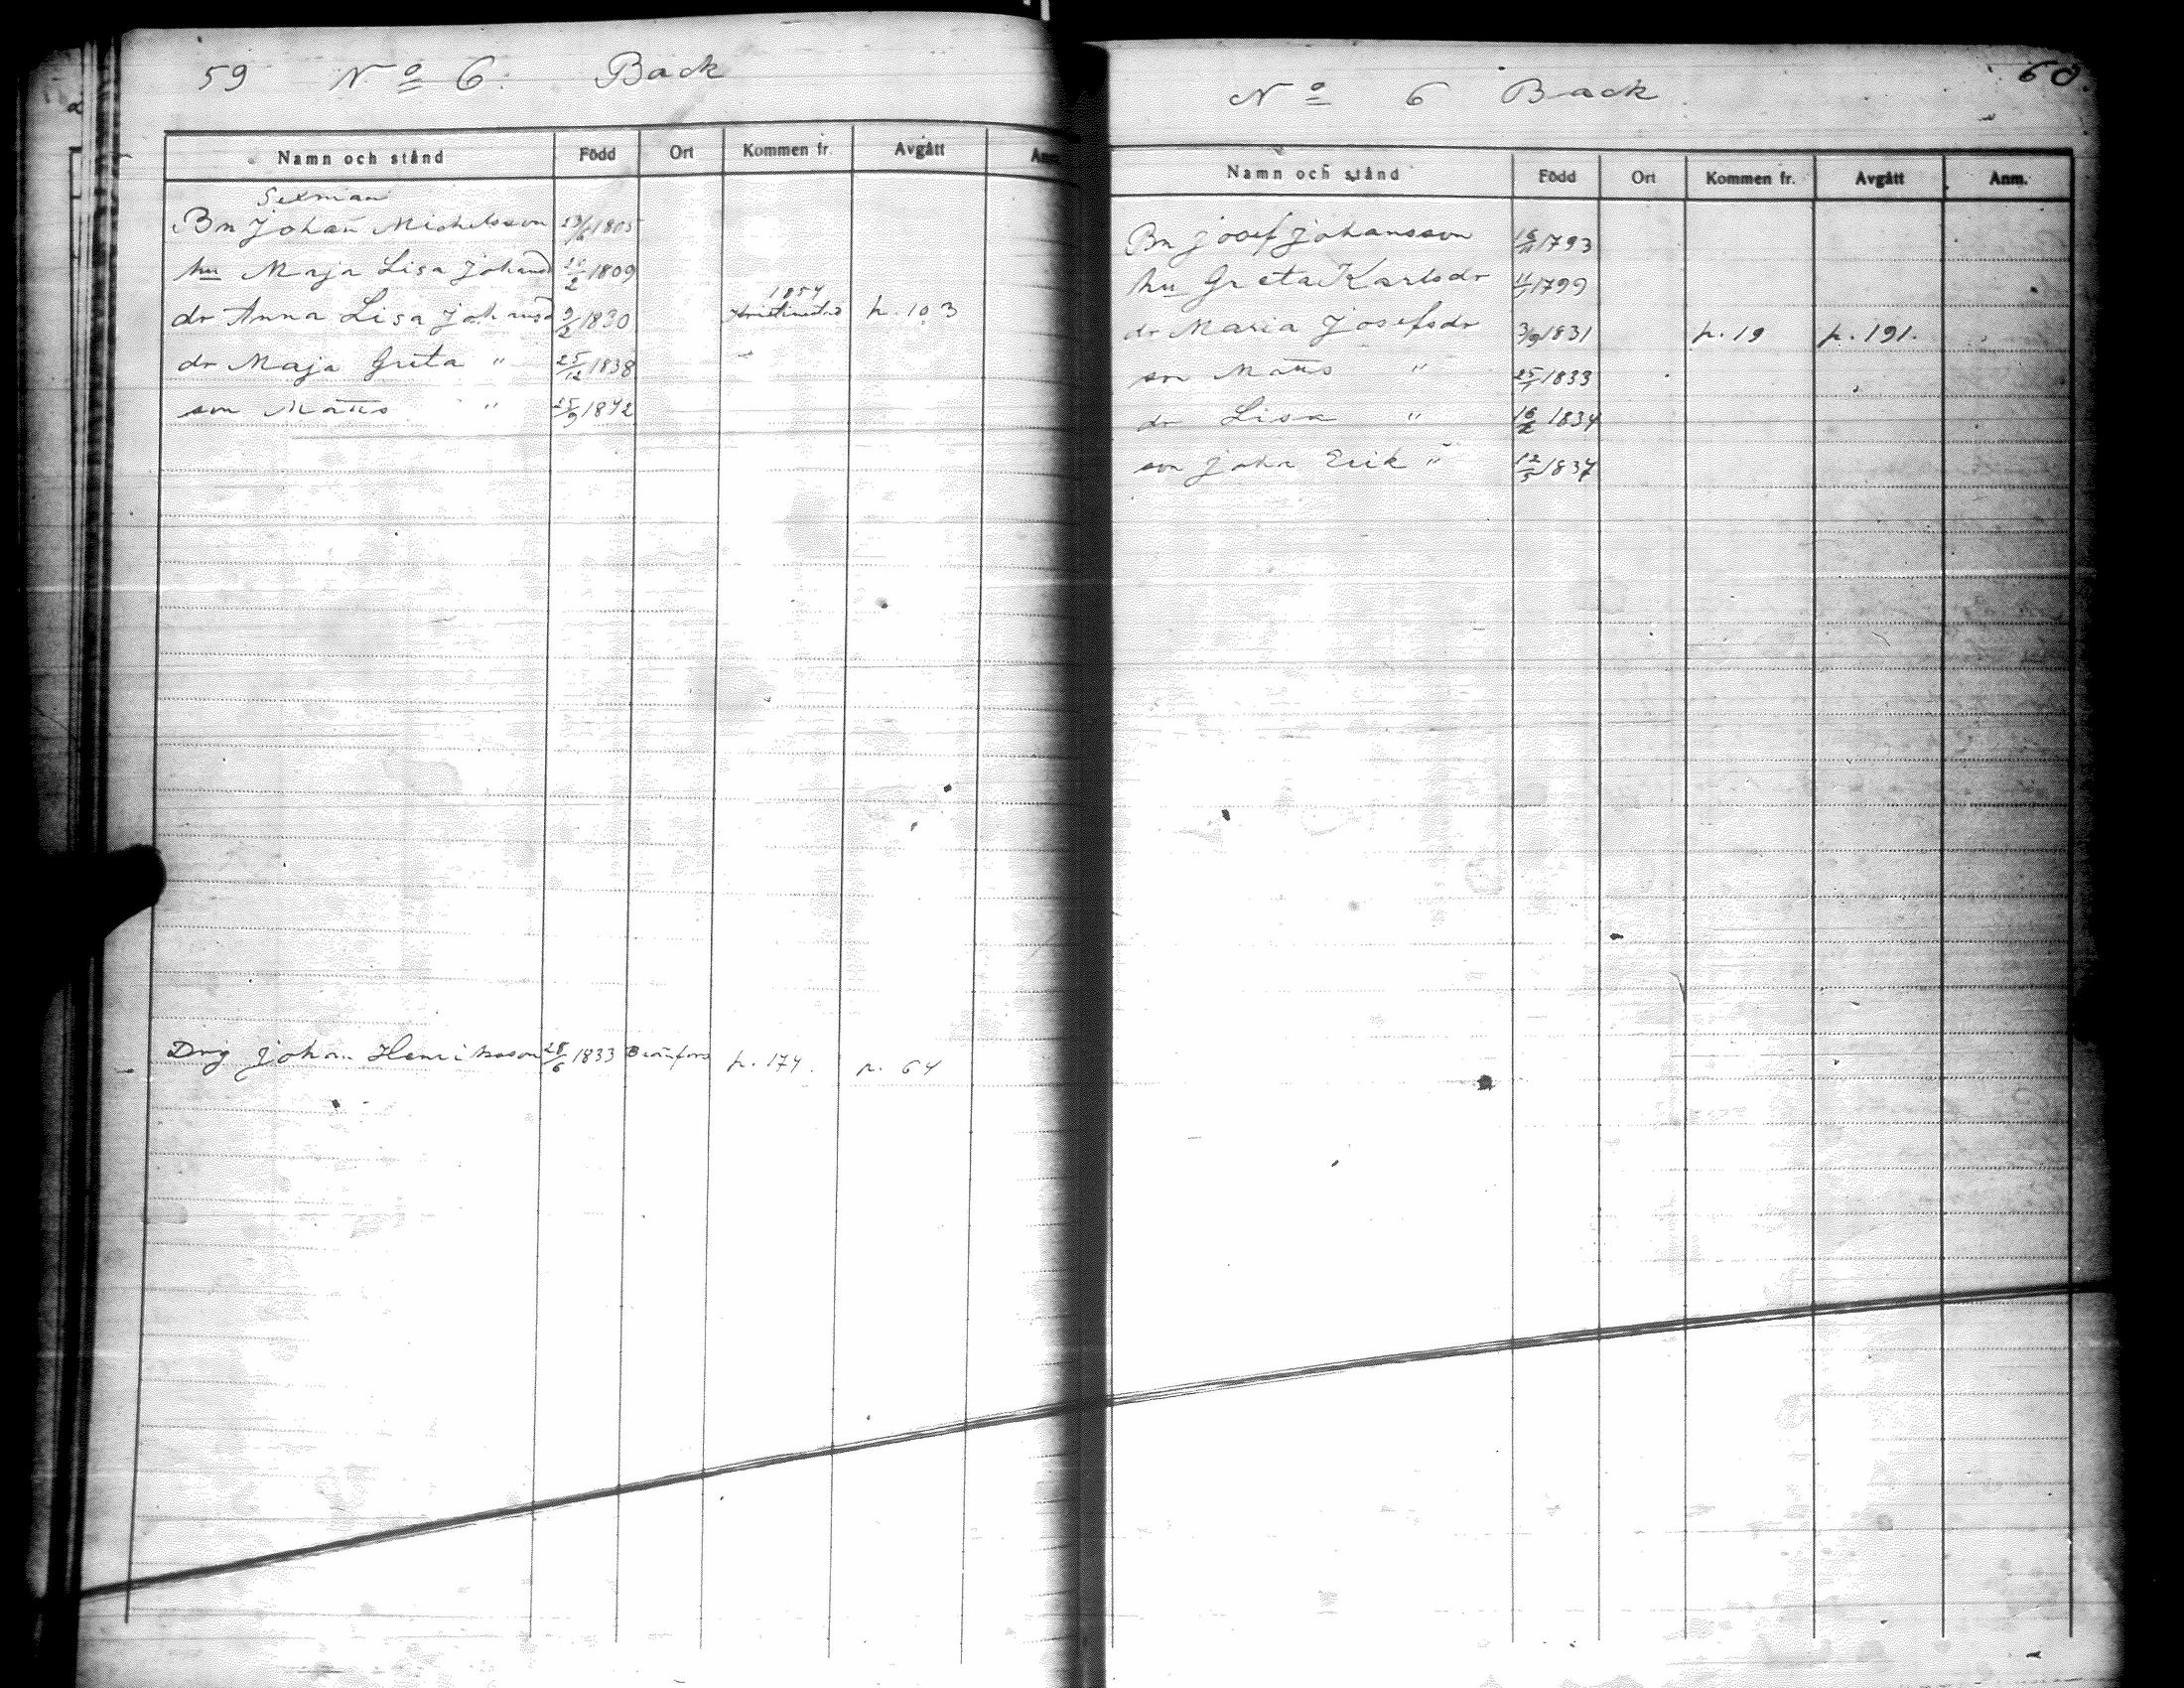 59 No 6. Back
Namn och stånd Född Ort Kommen fr. Avgått Anm.
Sexman
Bn Johan Michelsson 1805
hu Maja Lisa Johansd 1809
1854
dr Anna Lisa Johansd 9/2 1830 Kristinestad p. 103
dr Maja Greta " 25/12 1838
son Matts " 25/9 1842
Drg Johan Henriksson 28/6 1833 p. 174. p. 64
60.
No 6 Back
Namn och stånd Född Ort Kommen fr. Avgått Anm.
Bn Josef Johansson 16/11 1793
hu Greta Karlsdr 1799
dr Maria Josefsdr 3/9 1831 p. 19 p. 191.
son Matts " 25/1 1833
dr Lisa " 16/2 1834
son Johan Erik " 12/5 1837